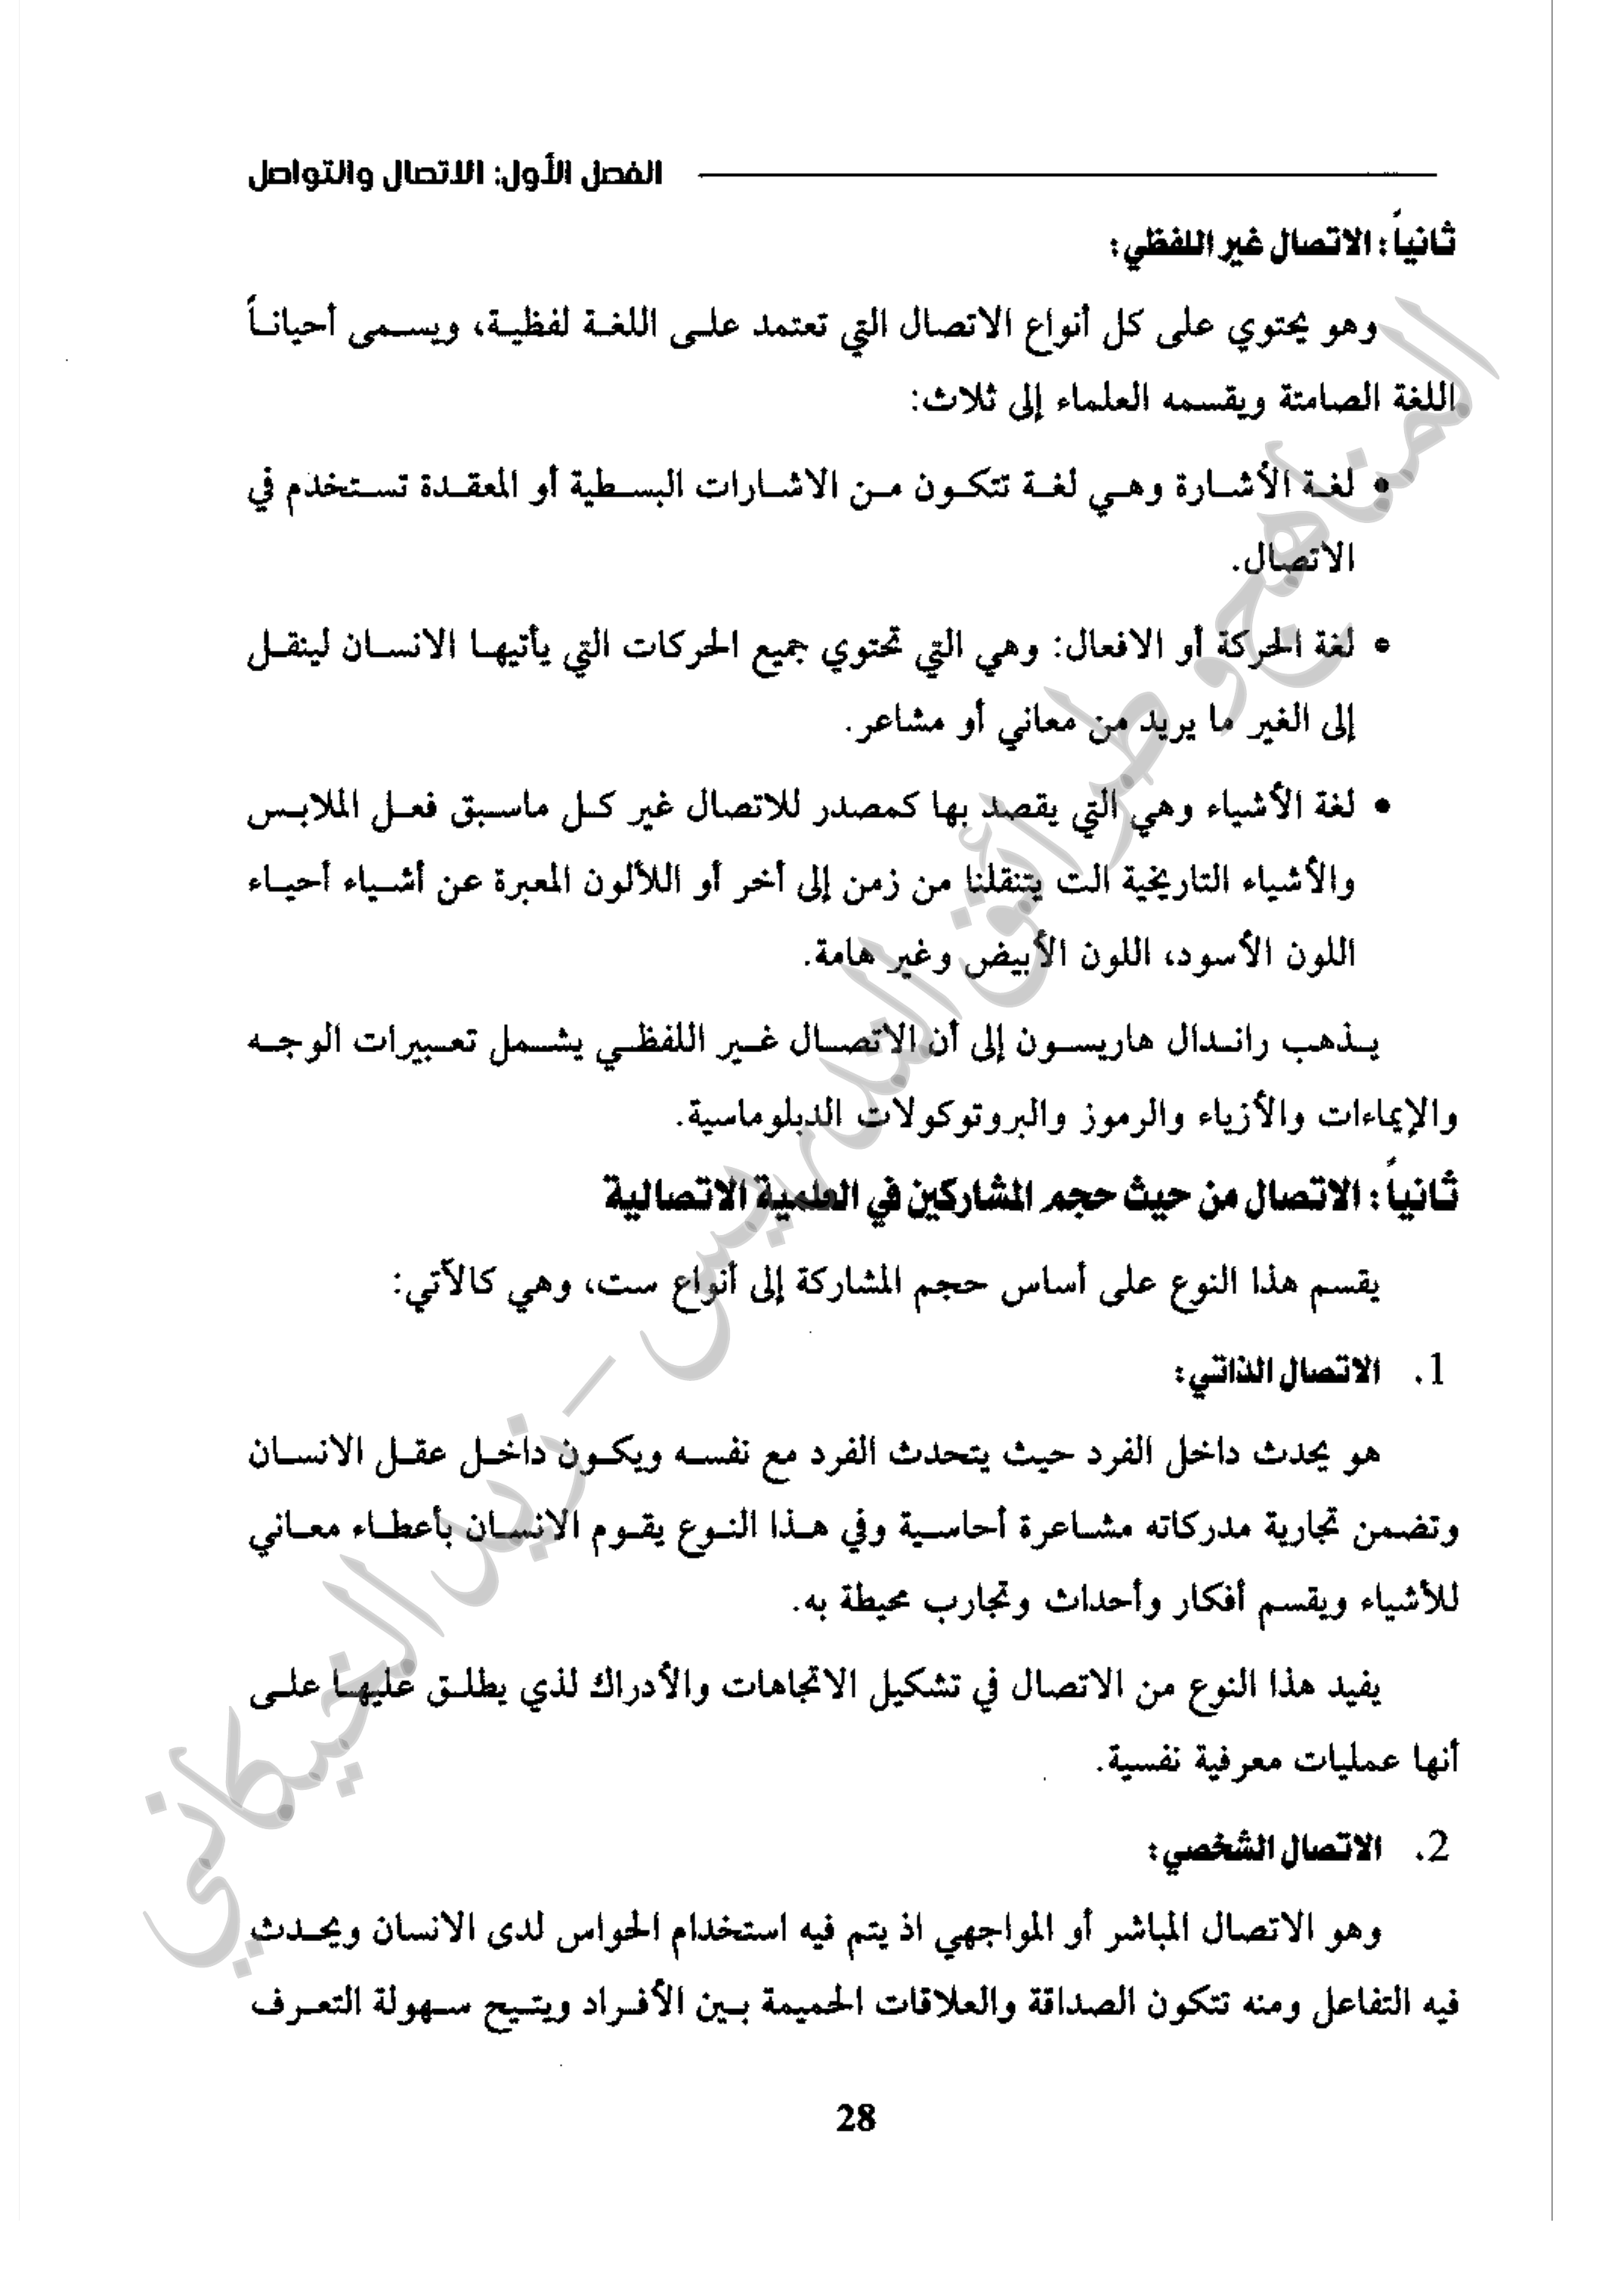 الفصل الأول: الاتصال والتواصل
ثانياً: الاتصال غير اللفظي:
وهو يحتوي على كل أنواع الاتصال التي تعتمد على اللغة لفظية، ويسمى أحياناً
اللغة الصامتة ويقسمه العلماء إلى ثلاث:
• لغة الأشارة وهي لغة تتكون من الاشارات البسطية أو المعقدة تستخدم في
الاتصال.
• لغة الحركة أو الافعال: وهي التي تحتوي جميع الحركات التي يأتيها الانسان لينقل
إلى الغير ما يريد من معاني أو مشاعر.
• لغة الأشياء وهي التي يقصد بها كمصدر للاتصال غير كل ماسبق فعل الملابس
والأشياء التاريخية الت يتنقلنا من زمن إلى أخر أو اللألون المعبرة عن أشياء أحياء
اللون الأسود، اللون الأبيض وغير هامة.
يذهب راندال هاريسون إلى أن الاتصال غير اللفظي يشمل تعبيرات الوجه
والإيماءات والأزياء والرموز والبروتوكولات الدبلوماسية.
ثانياً: الاتصال من حيث حجم المشاركين في العلمية الاتصالية
يقسم هذا النوع على أساس حجم المشاركة إلى أنواع ست، وهي كالآتي:
1. الاتصال الذاتي:
هو يحدث داخل الفرد حيث يتحدث الفرد مع نفسه ويكون داخل عقل الانسان
وتضمن تجارية مدركاته مشاعرة أحاسية وفي هذا النوع يقوم الانسان بأعطاء معاني
للأشياء ويقسم أفكار وأحداث وتجارب محيطة به.
يفيد هذا النوع من الاتصال في تشكيل الاتجاهات والأدراك لذي يطلق عليها على
أنها عمليات معرفية نفسية.
2. الاتصال الشخصي:
وهو الاتصال المباشر أو المواجهي اذ يتم فيه استخدام الحواس لدى الانسان ويحدث
فيه التفاعل ومنه تتكون الصداقة والعلاقات الحميمة بين الأفراد ويتيح سهولة التعرف
28
المناهج وطرائق التدريس - زيد الخيكاني